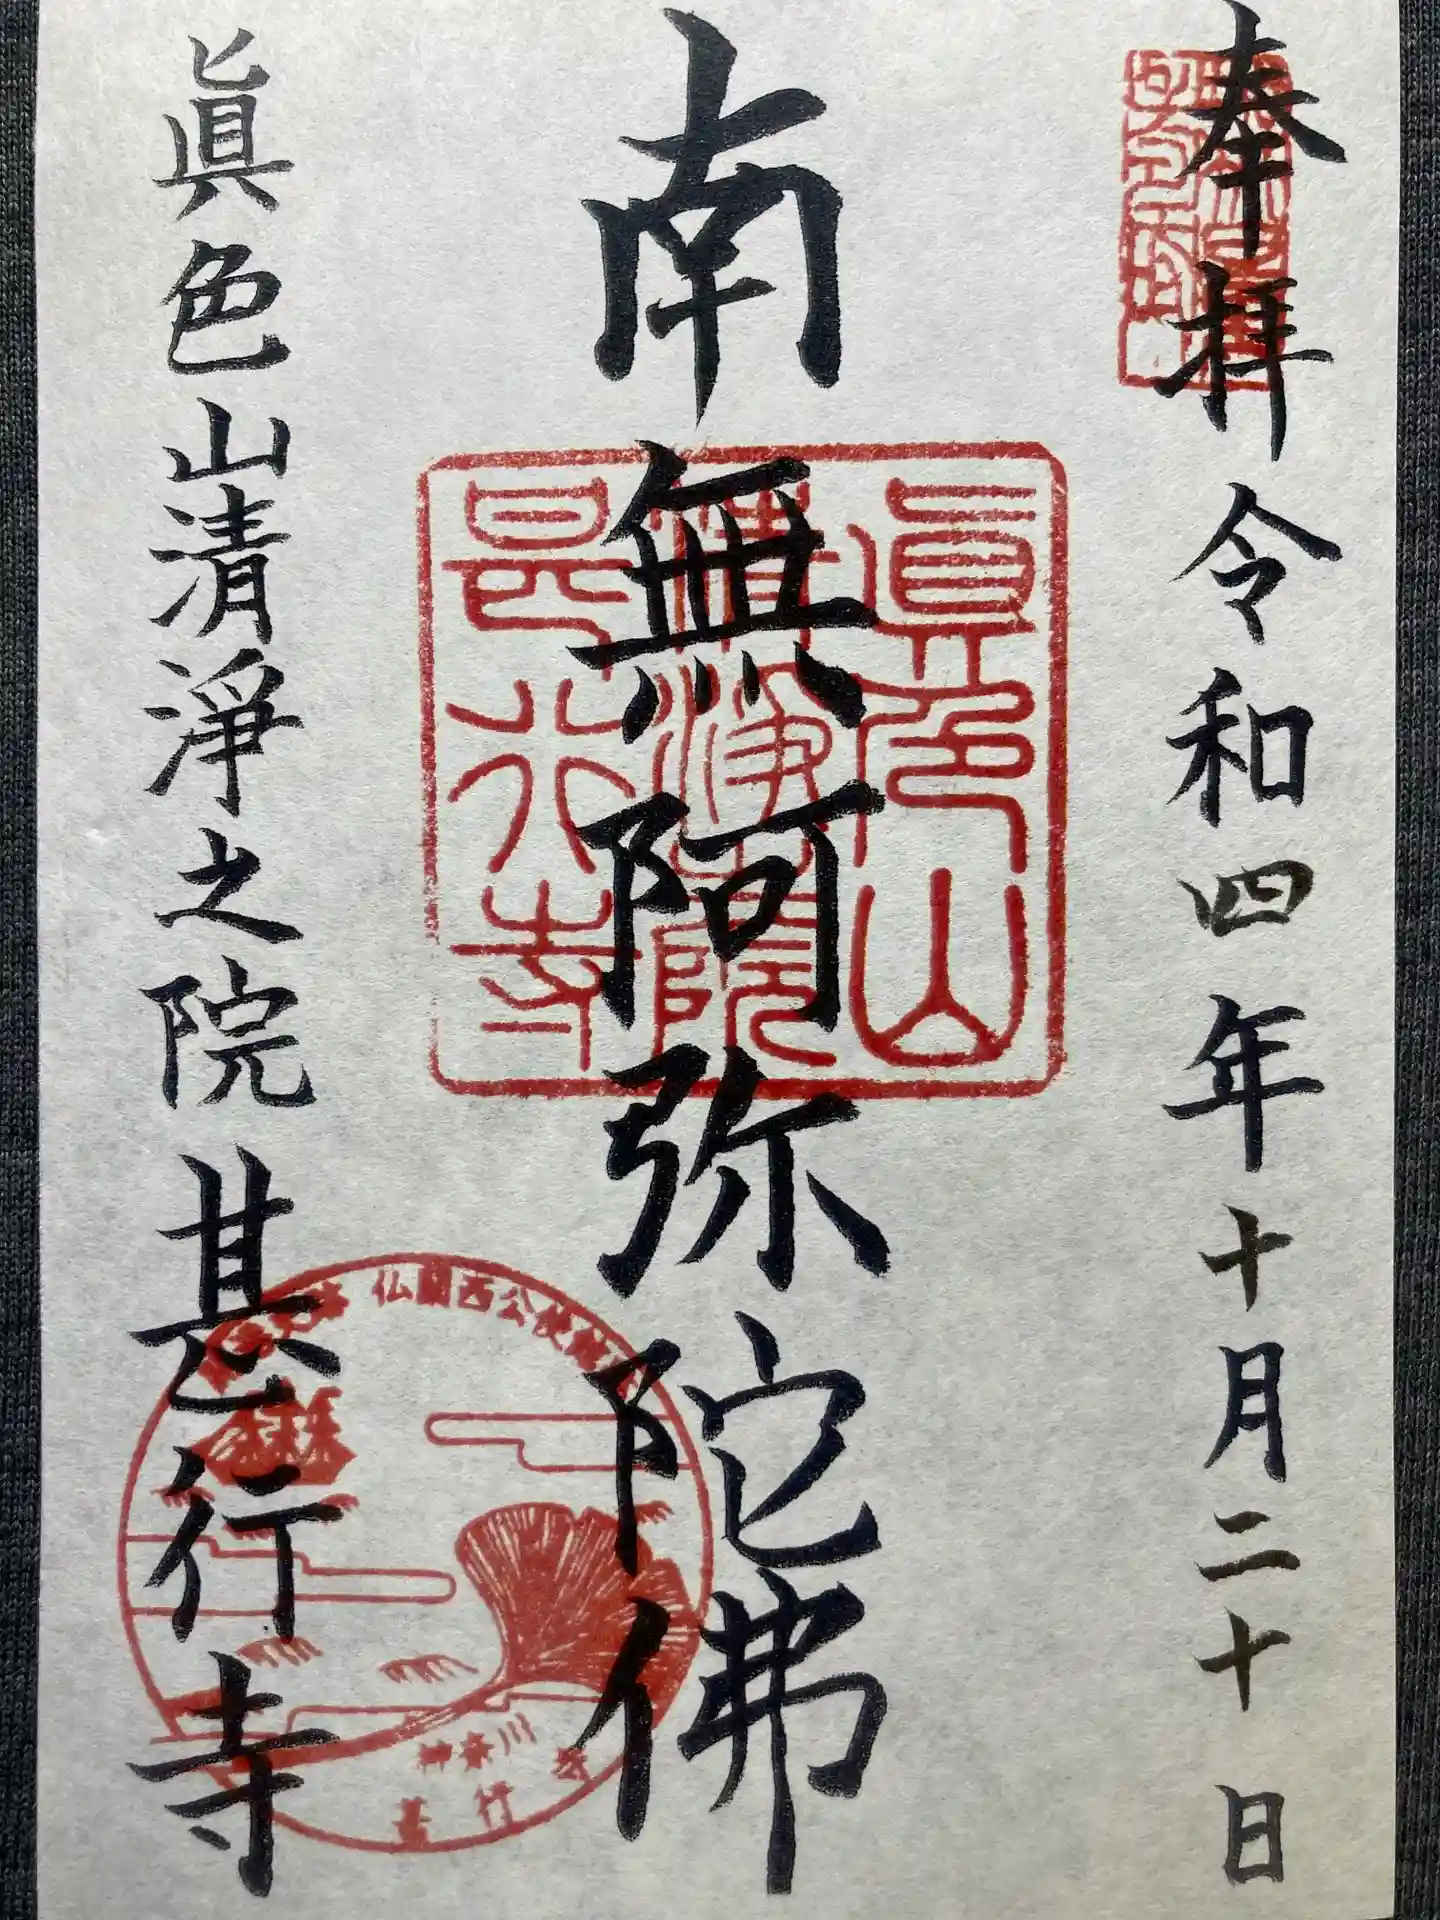 奉拝 令和四年十月二十日
南無阿弥陀佛
眞色山清淨之院 甚行寺
眞色山
清浄之院
甚行寺
仏蘭西公使館
神奈川
甚行寺